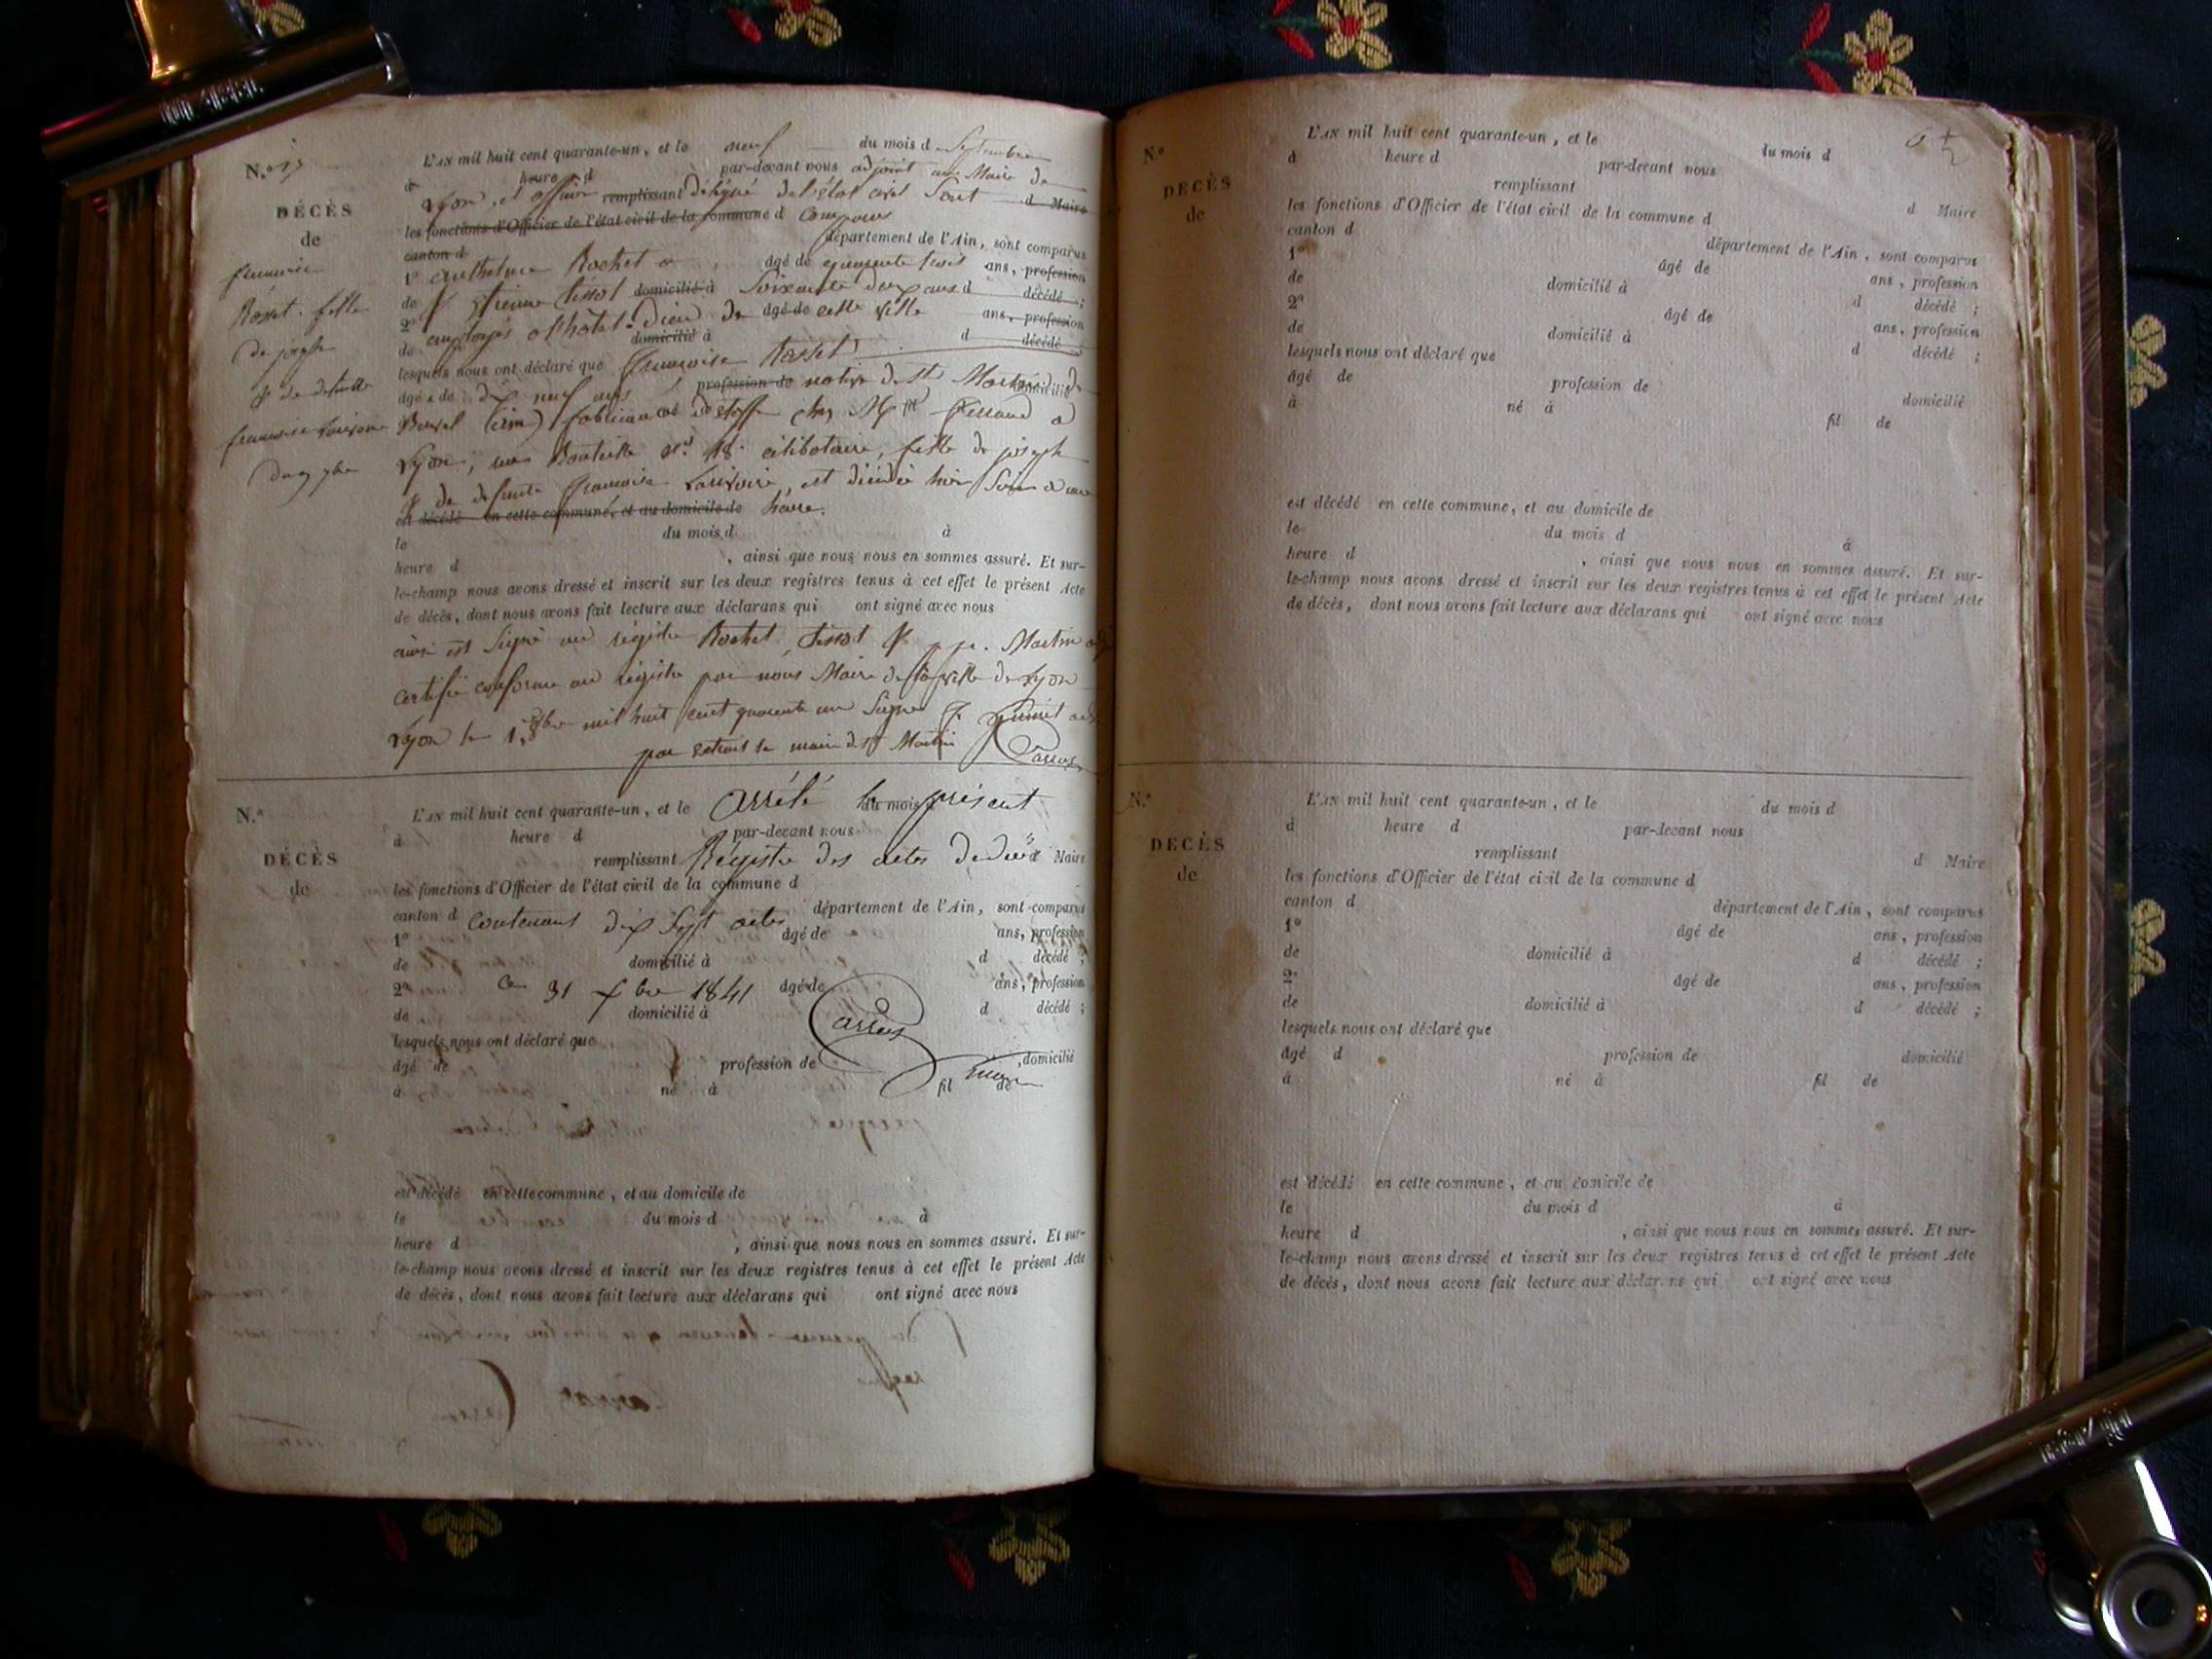 N.° 17
DÉCÈS
de
françoise
Rosset fille
de joseph
& de defunte
françoise Lauvoire
du 9 7bre
L'AN mil huit cent quarante-un, et le neuf du mois d Septembre
à heure d par-devant nous adjoint au Maire de
Lyon, et officier remplissant délégué de l'état civil Sont d Maire
les fonctions d'Officier de l'état civil de la commune d comparus
canton d département de l'Ain, sont comparus
1° anthelme Rochet âgé de quarante trois ans, profession
de & Etienne tissot domicilié à soixante deux ans d décédé ;
2° employés a l'hôtel-Dieu de âgé de cette ville ans, profession
de domicilié à d décédé ;
lesquels nous ont déclaré que françoise Rosset
âgé e de dix neuf ans profession de native de St Martin de domicilié
(ain) d'étoffe chez a
Lyon, n° 18. célibataire, fille de joseph
& de defunte françoise Lauvoire, est décédée hier soir a une
est décédé en cette commune, et au domicile de heure.
le du mois d à
heure d , ainsi que nous nous en sommes assuré. Et sur-
le-champ nous avons dressé et inscrit sur les deux registres tenus à cet effet le présent Acte
de décès, dont nous avons fait lecture aux déclarans qui ont signé avec nous
ainsi est signé au régistre Rochet, tissot & Martin adj
certifié conforme au régistre par nous Maire de la ville de Lyon
Lyon le 1, mil huit cent quarante un signé
par extrait le maire de St Martin
N.°
DÉCÈS
de
L'AN mil huit cent quarante-un, et le arrêté le du mois d présent
à heure d par-devant nous
remplissant Régistre des actes de décès d Maire
les fonctions d'Officier de l'état civil de la commune d
canton d contenant dix sept actes département de l'Ain, sont comparus
1° âgé de ans, profession
de domicilié à d décédé ;
2° ce 31 Xbre 1841 âgé de ans, profession
de domicilié à d décédé ;
lesquels nous ont déclaré que
âgé de profession de domicilié
à né à fil de
est décédé en cette commune, et au domicile de
le du mois d à
heure d , ainsi que nous nous en sommes assuré. Et sur-
le-champ nous avons dressé et inscrit sur les deux registres tenus à cet effet le présent Acte
de décès, dont nous avons fait lecture aux déclarans qui ont signé avec nous
N.°
DÉCÈS
de
L'AN mil huit cent quarante-un, et le du mois d
à heure d par-devant nous
remplissant d Maire
les fonctions d'Officier de l'état civil de la commune d
canton d département de l'Ain, sont comparus
1° âgé de ans, profession
de domicilié à d décédé ;
2° âgé de ans, profession
de domicilié à d décédé ;
lesquels nous ont déclaré que
âgé de profession de domicilié
à né à fil de
est décédé en cette commune, et au domicile de
le du mois d à
heure d , ainsi que nous nous en sommes assuré. Et sur-
le-champ nous avons dressé et inscrit sur les deux registres tenus à cet effet le présent Acte
de décès, dont nous avons fait lecture aux déclarans qui ont signé avec nous
N.°
DÉCÈS
de
L'AN mil huit cent quarante-un, et le du mois d
à heure d par-devant nous
remplissant d Maire
les fonctions d'Officier de l'état civil de la commune d
canton d département de l'Ain, sont comparus
1° âgé de ans, profession
de domicilié à d décédé ;
2° âgé de ans, profession
de domicilié à d décédé ;
lesquels nous ont déclaré que
âgé d profession de domicilié
à né à fil de
est décédé en cette commune, et au domicile de
le du mois d à
heure d , ainsi que nous nous en sommes assuré. Et sur-
le-champ nous avons dressé et inscrit sur les deux registres tenus à cet effet le présent Acte
de décès, dont nous avons fait lecture aux déclarans qui ont signé avec nous